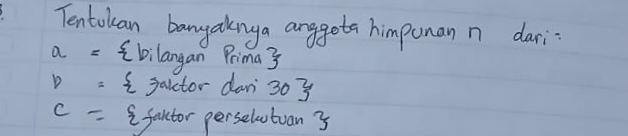 Tentukan banyaknya anggota himpunan n dari:
a = { bilangan Prima }
b = { faktor dari 30 }
c = { faktor persekutuan }